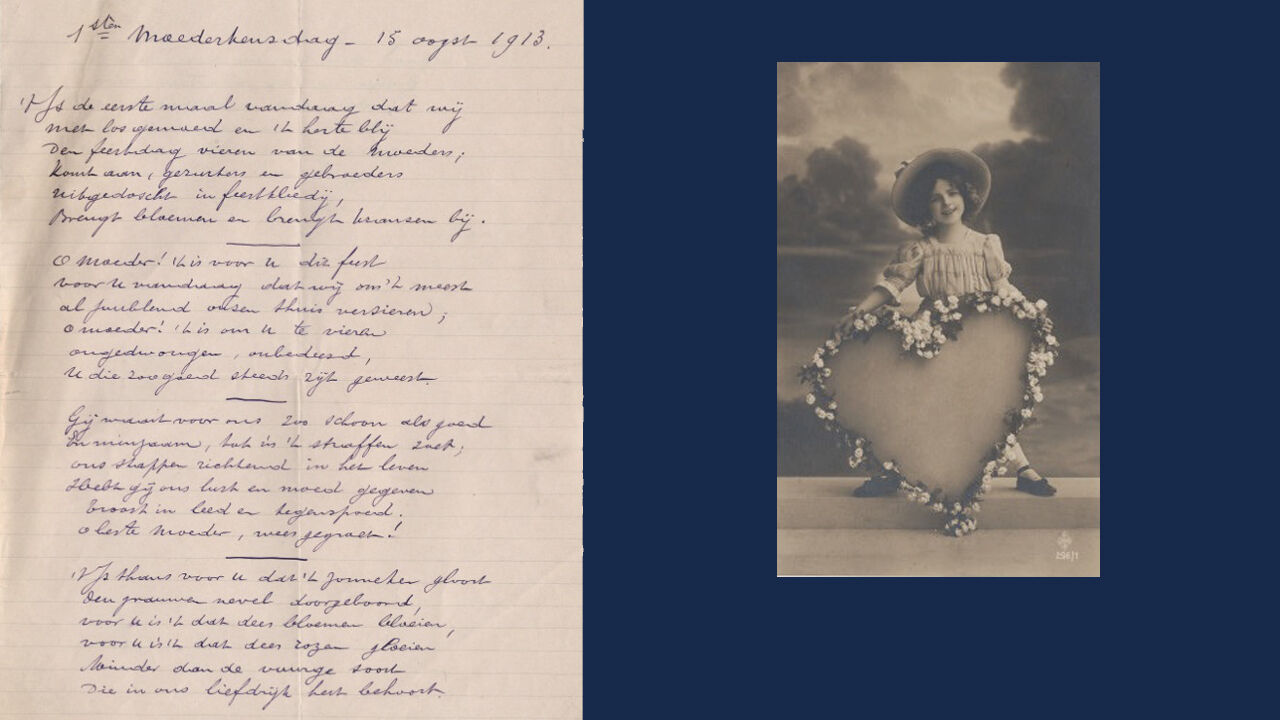 1sten Moederkensdag - 15 oogst 1913.
't Is de eerste maal vandaag dat wij
met los gemoed en 't herte blij
Den feestdag vieren van de moeders;
komt aan, gezusters en gebroeders
uitgedoscht in feestkledij,
Brengt bloemen en brengt kransen bij.
O Moeder! 't is voor u dit feest
voor u vandaag dat wij om 't meest
al jubelend onsen thuis versieren;
o moeder! 't is om u te vieren
ongedwongen, onbedeesd,
u die zoo goed steeds zijt geweest.
Gij waart voor ons zoo schoon als goed
En minzaam, tot in 't straffen zoet;
ons stappen richtend in het leven
Hebt gij ons lust en moed gegeven
troost in leed en tegenspoed.
O beste Moeder, wees gegroet!
't Is thans voor u dat 't zonneken gloort
den grauwen nevel doorgeboord,
voor u is 't dat dees bloemen bloeien,
voor u is 't dat dees rozen gloeien
Minder dan de vuurge soort
Die in ons liefdrijk hert behoort.
256/1